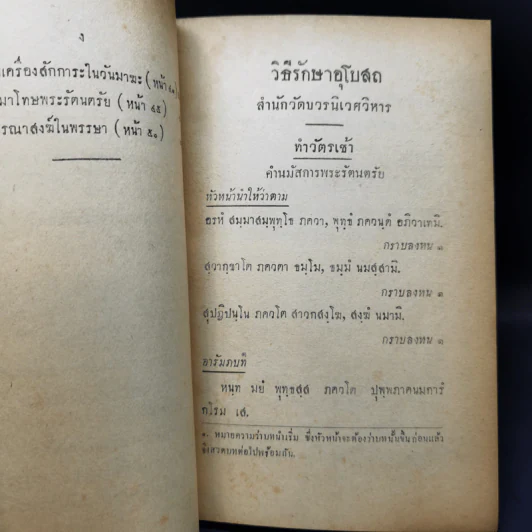 ง
เครื่องสักการะในวันมาฆะ (หน้า ๔๓)
มาโทษพระรัตนตรัย (หน้า ๔๕)
รณาสงฆ์ในพรรษา (หน้า ๕๑)
วิธีรักษาอุโบสถ
สำนักวัดบวรนิเวศวิหาร
ทำวัตรเช้า
คำนมัสการพระรัตนตรัย
หัวหน้านำให้ว่าตาม
อรหํ สมฺมาสมฺพุทฺโธ ภควา, พุทฺธํ ภควนฺตํ อภิวาเทมิ.
กราบลงหน ๑
สฺวากฺขาโต ภควตา ธมฺโม, ธมฺมํ นมสฺสามิ.
กราบลงหน ๑
สุปฏิปนฺโน ภควโต สาวกสงฺโฆ, สงฺฆํ นมามิ.
กราบลงหน ๑
อารัมภบท
หนฺท มยํ พุทฺธสฺส ภควโต ปุพฺพภาคนมการํ
กโรม เส.
๑. หมายความว่าบทนำเริ่ม ซึ่งหัวหน้าจะต้องว่าบทนั้นขึ้นก่อนแล้ว
จึงสวดบทต่อไปพร้อมกัน.